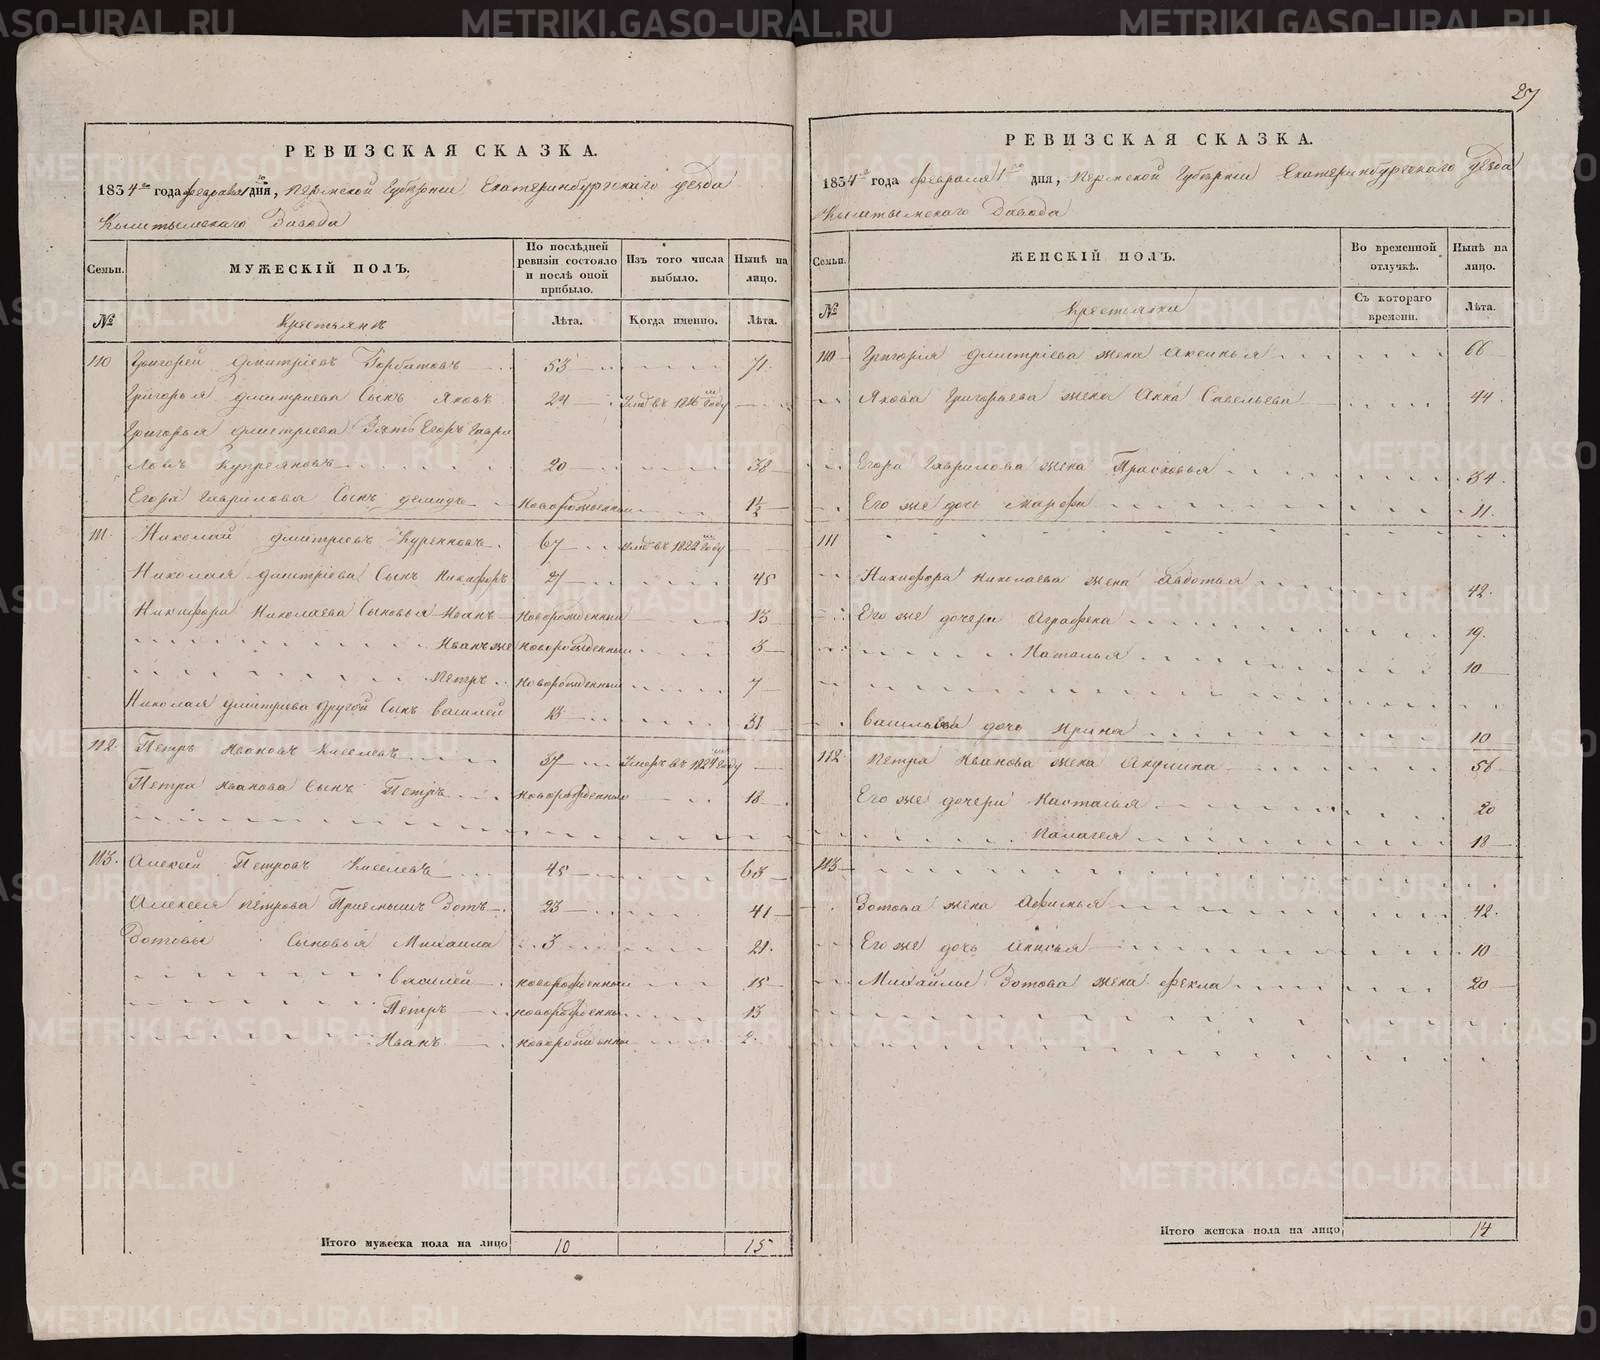 27
РЕВИЗСКАЯ СКАЗКА.
1834 го года февраля 1 го дня, Пермской Губернии Екатеринбургского уезда
Кыштымскаго Завода
Семьи.
МУЖЕСКІЙ ПОЛЪ.
По послѣдней ревизіи состояло и послѣ оной прибыло.
Изъ того числа выбыло.
Нынѣ на лицо.
№
Крестьянъ
Лѣта.
Когда именно.
Лѣта.
110 Григорей Дмитріевъ Горбатовъ 53 71
Григорья Дмитриева Сынъ Яковъ 24 Умръ въ 1816 м Году
Григорья Дмитриева Зять Егоръ Гаври
ловъ Купреяновъ 20 38
Егора Гаврилова Сынъ Демидъ Новорожденный 1½
111 Николай Дмитріевъ Куренковъ 67 умръ въ 1822 м Году
Николая Дмитріева Сынъ Никифоръ 27 45
Никифора Николаева Сыновья Иванъ Новорожденный 13
Иванъ же Новорожденный 3
Петръ Новорожденный 7
Николая Дмитрива другой Сынъ Василей 13 31
112 Петръ Ивановъ Киселевъ 37 Умеръ въ 1824 м Году
Петра Иванова Сынъ Петръ Новорожденный 18
113 Алексей Петровъ Киселевъ 45 63
Алексея Петрова Приемышъ Зотъ 23 41
Зотовы Сыновья Михаила 3 21
Василей новорожденный 15
Петръ новорожденны 13
Иванъ новорожденны 2
Итого мужеска пола на лицо 10 15
РЕВИЗСКАЯ СКАЗКА.
1834 го года февраля 1 го дня, Пермской Губерніи Екатеринбургскаго Уезда
Кыштымскаго Завода
Семьи.
ЖЕНСКІЙ ПОЛЪ.
Во временной отлучкѣ.
Нынѣ на лицо.
№
Крестьянки
Съ котораго времени.
Лѣта.
110 Григорія Дмитріева жена Аксинья 66
Якова Григорьева жена Анна Савельева 44
Егора Гаврилова жена Прасковья 34
Его же дочь Марфа 11
111
Никифора Николаева жена Авдотья 42
Его же дочери Аграфена 19
Наталья 10
Васильева дочь Ирина 10
112 Петра Иванова жена Акулина 56
Его же дочери Насталья 20
Палагея 18
113
Зотова жена Афимья 42
Его же дочь Анисья 10
Михайлы Зотова жена фекла 20
Итого женска пола на лицо 14
METRIKI.GASO-URAL.RU